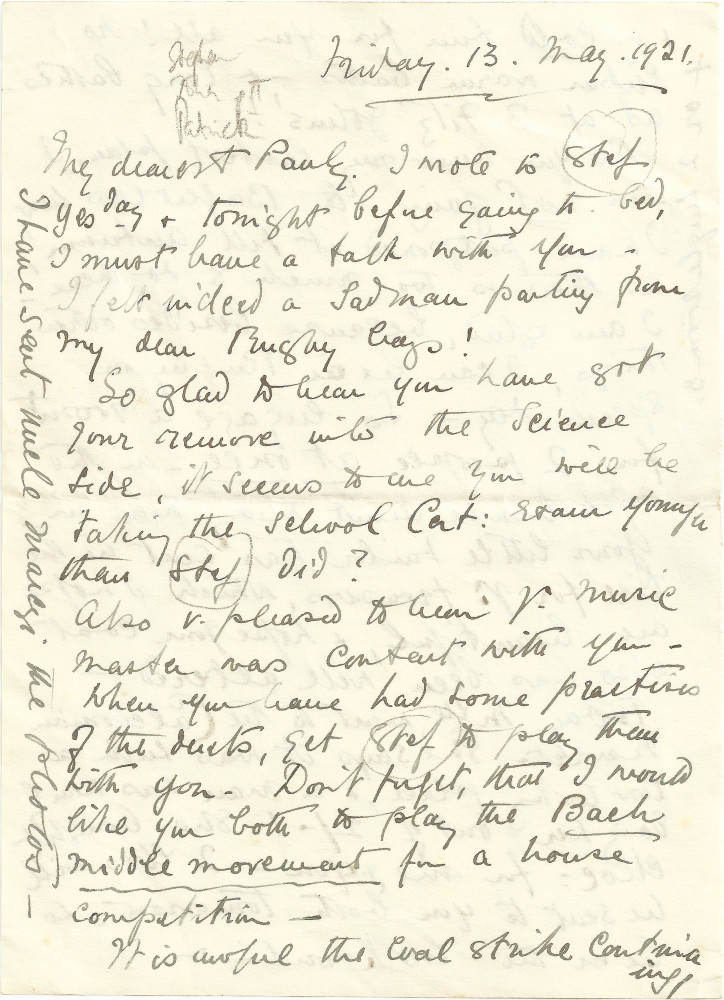 Stephen
John
Patrick
Friday. 13. May. 1921.
My dearest Pauly. I wrote to Stef
yesday & tonight before going to bed,
I must have a talk with you -
I felt indeed a Sadman parting from
my dear Rugby boys!
So glad to hear you have got
your remove into the Science
side, it seems to me you will be
taking the School Cert: Exam younger
than Stef did?
Also v. pleased to hear yr. Music
master was content with you -
When you have had some practises
of the duets, get Stef to play them
with you - Don't forget, that I would
like you both to play the Bach
middle movement for a house
competition -
It is awful the Coal Strike Contin
ing,
I have sent uncle the photos -